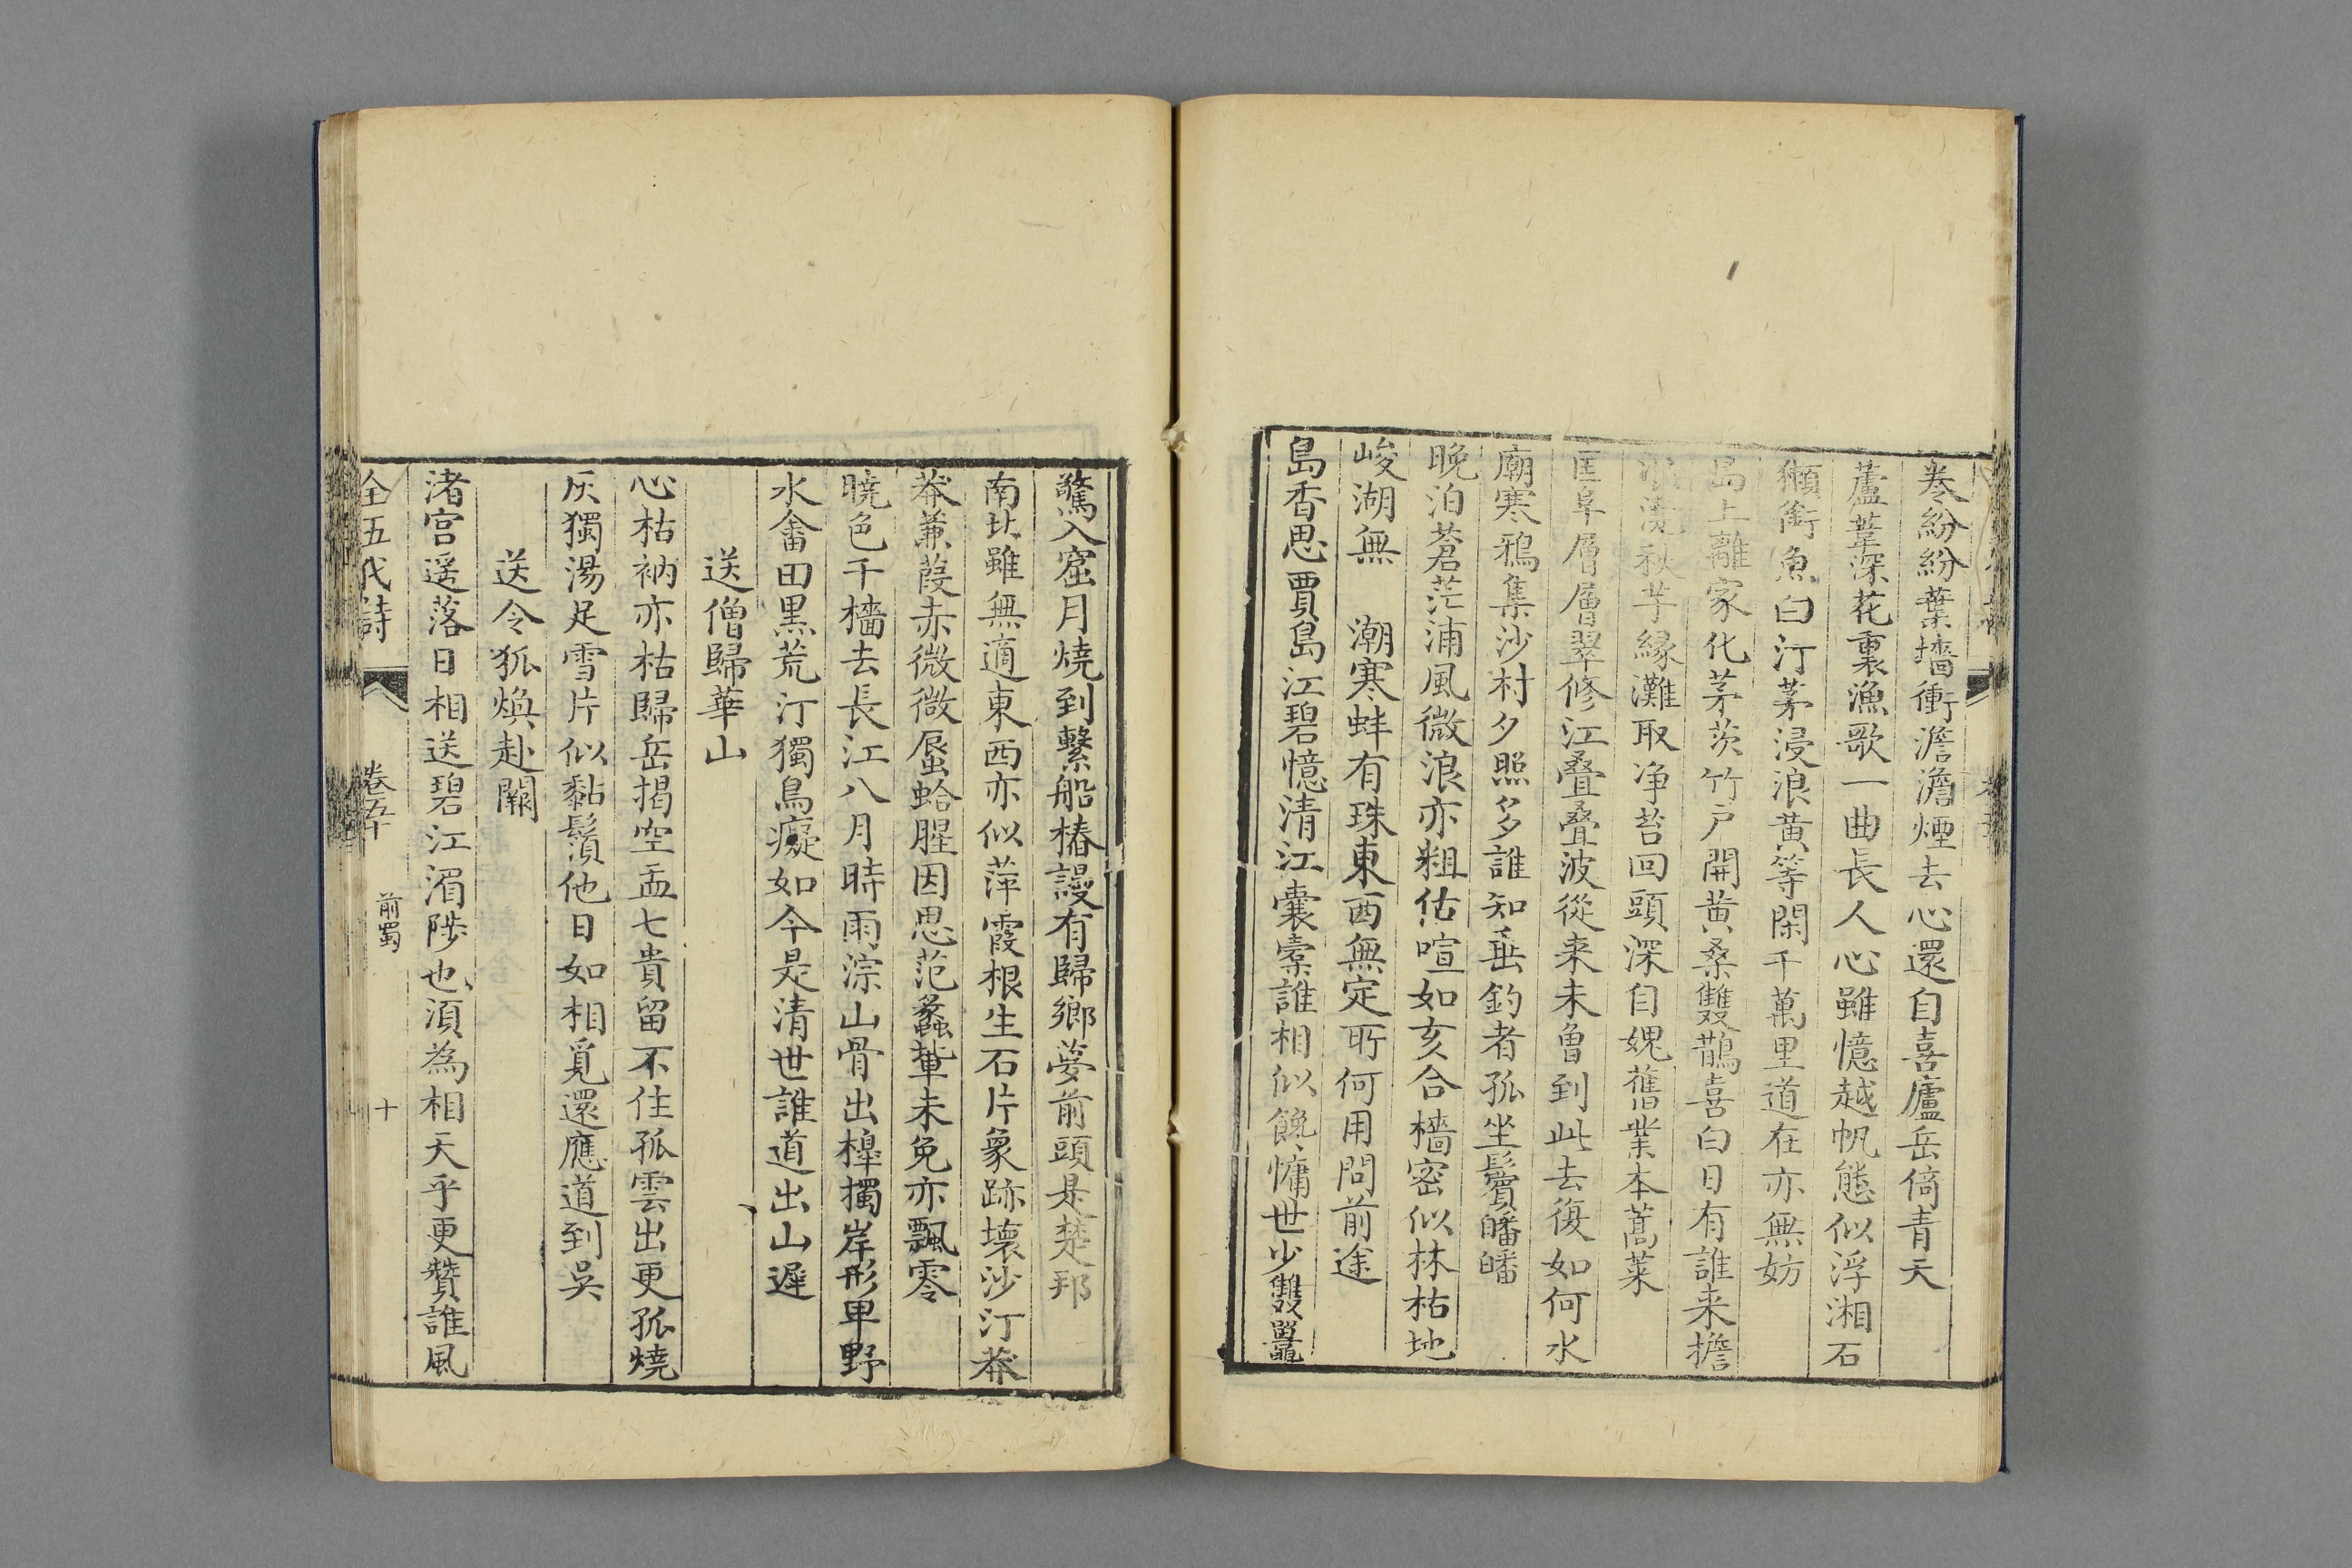 卷紛紛葉墻衝澹澹煙去心還自喜廬岳倚青天
蘆葦深花裏漁歌一曲長人心雖憶越帆態似浮湘石
獺銜魚白汀茅浸浪黃等閑千萬里道在亦無妨
島上離家化茅茨竹戶開黃桑雙鵲喜白日有誰来擔
湯秋芋緣灘取净苔回頭深自媿舊業本蒿萊
匡阜層層翠修江叠叠波從来未曾到此去復如何水
廟寒鴉集沙村夕照多誰知垂釣者孤坐鬢皤皤
晚泊蒼茫浦風微浪亦粗估喧如亥合檣密似林枯地
峻湖無潮寒蚌有珠東西無定所何用問前途
島香思賈島江碧憶清江囊橐誰相似饞慵世少雙鼉
驚入窟月燒到繫船樁謾有歸鄉夢前頭是楚邦
南北雖無適東西亦似萍霞根生石片象跡壞沙汀莽
莽蒹葭赤微微蜃蛤腥因思范蠡輩未免亦飄零
曉色千檣去長江八月時雨淙山骨出槹擉岸形卑野
水畬田黑荒汀獨鳥癡如今是清世誰道出山遲
送僧歸華山
心枯衲亦枯歸岳揭空盂七貴留不住孤雲出更孤燒
灰獨湯足雪片似黏鬚他日如相覓還應道到吳
送令狐煥赴闕
渚宮遥落日相送碧江湄陟也須為相天乎更贊誰風
全五代詩 卷五十 前蜀 十